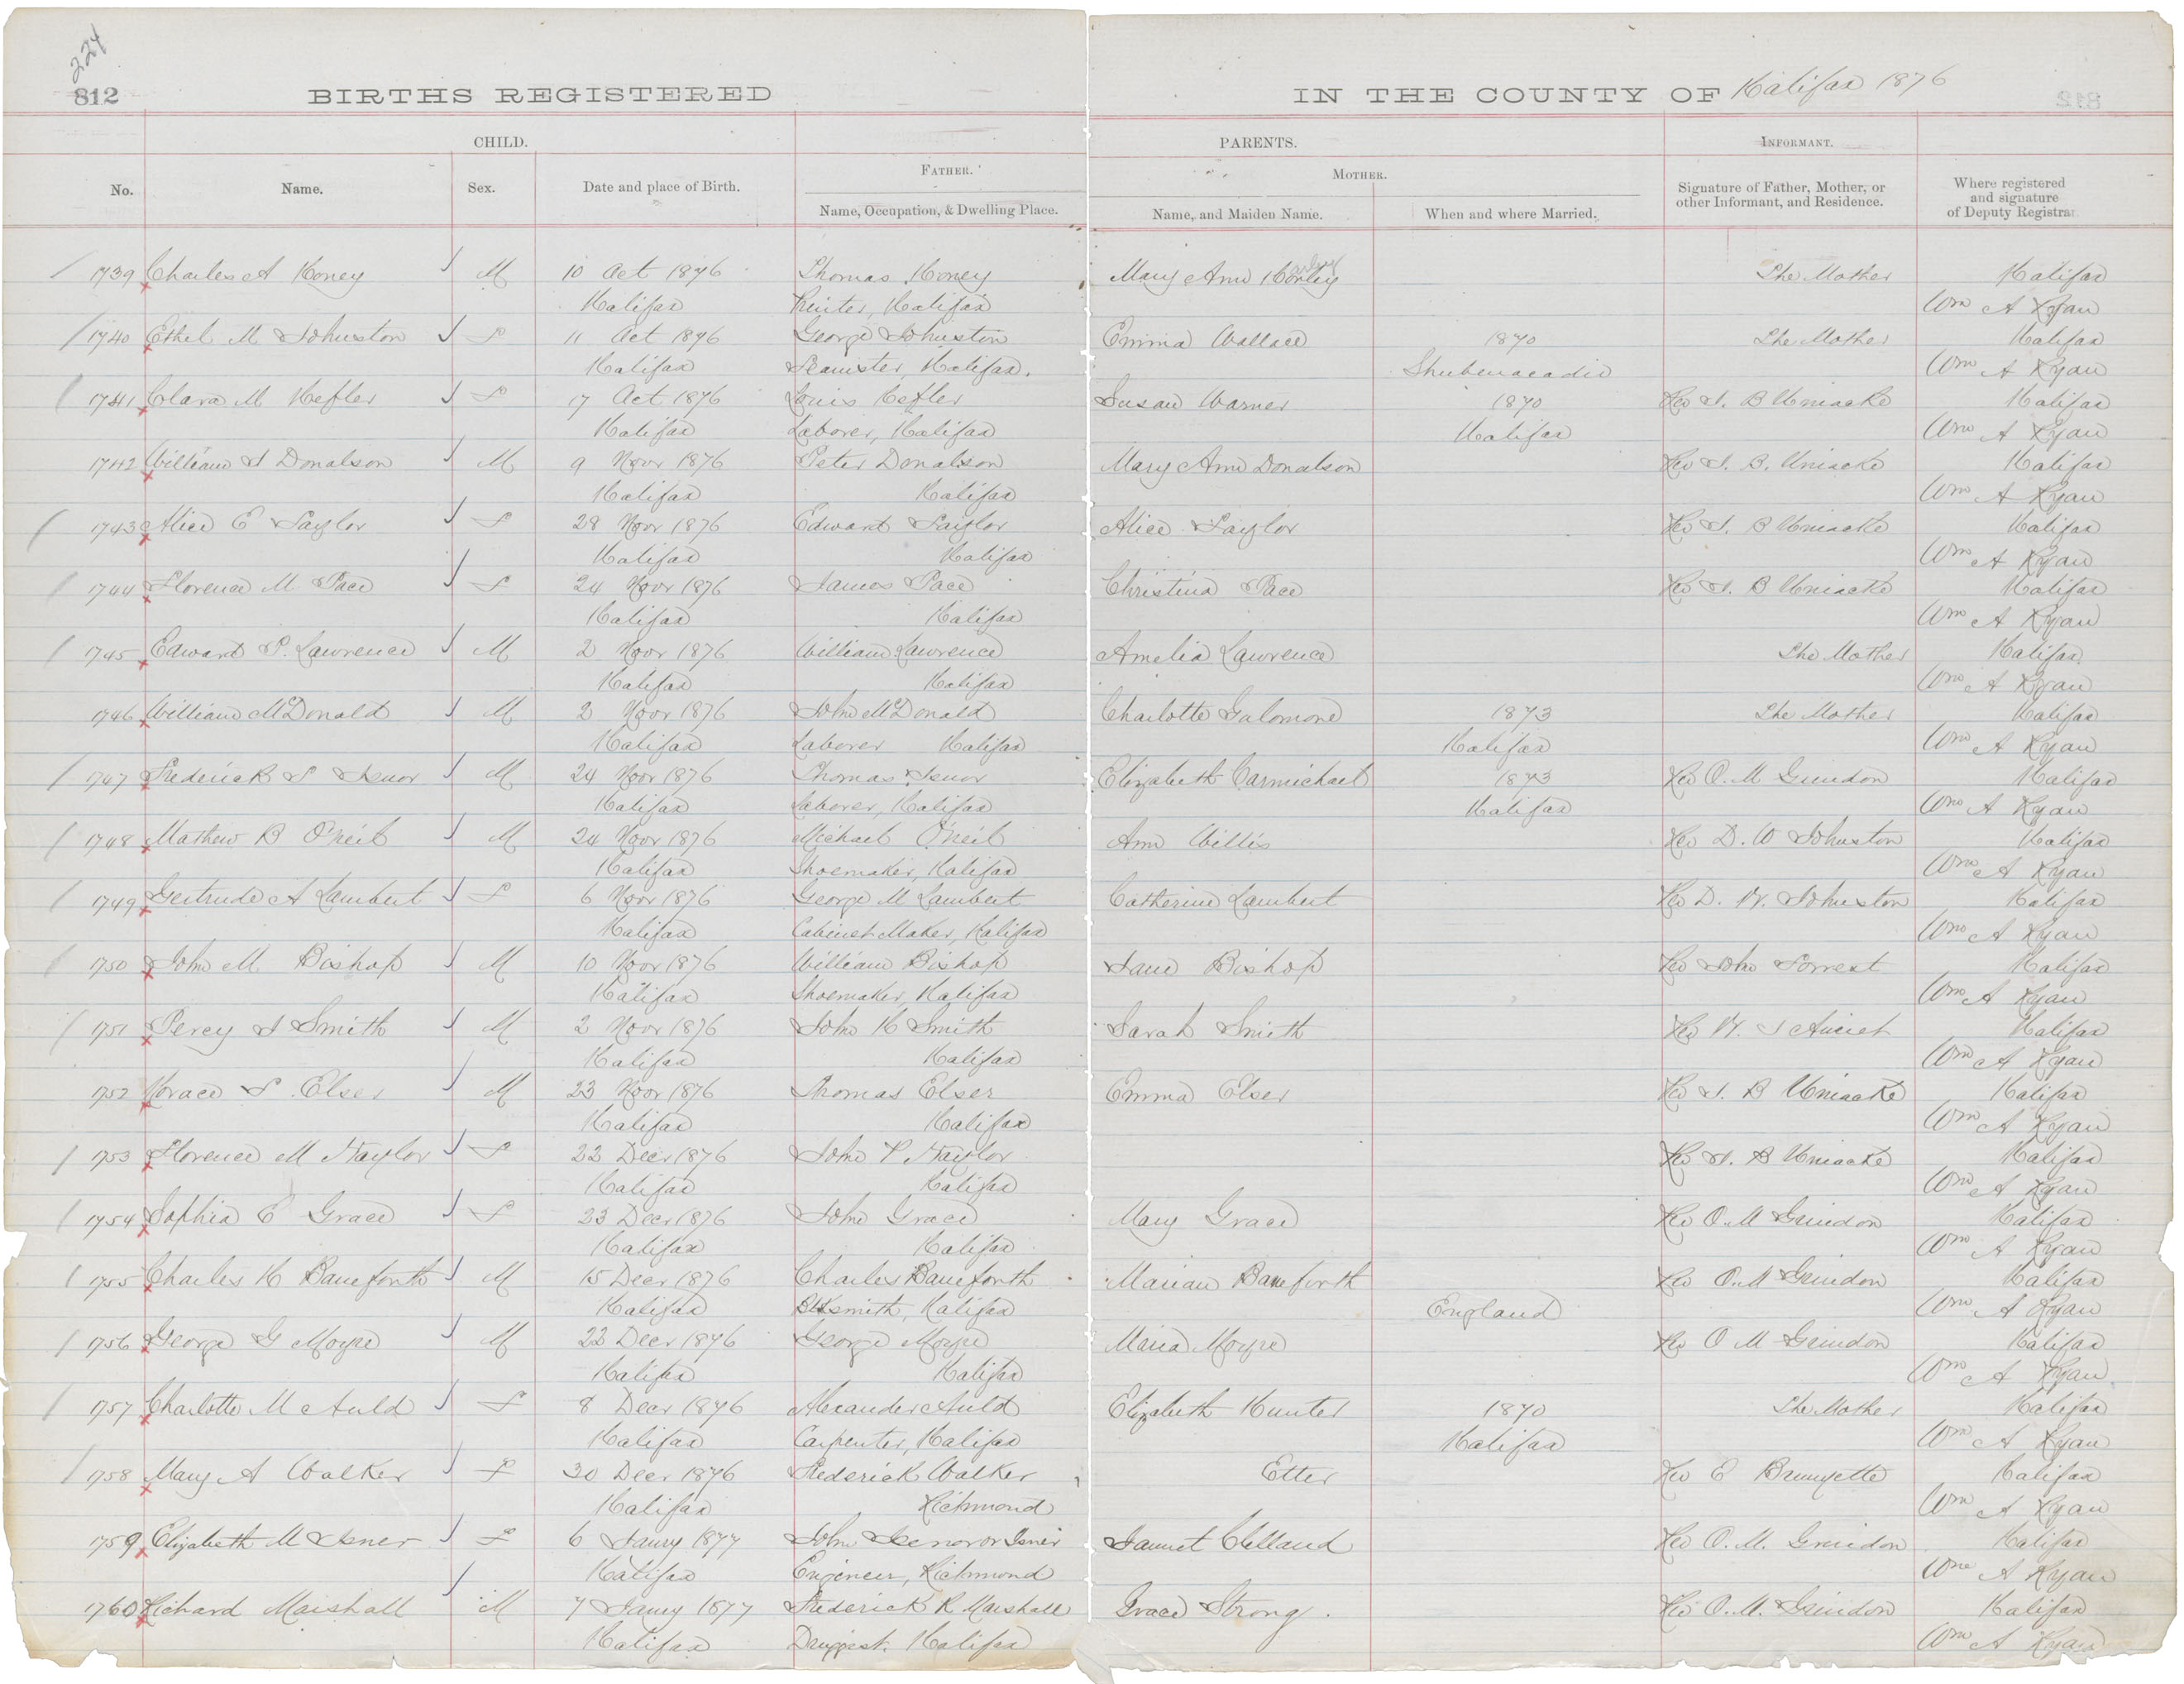 224
812 BIRTHS REGISTERED IN THE COUNTY OF Halifax 1876
CHILD. PARENTS. INFORMANT.
FATHER. MOTHER.
No. Name. Sex. Date and place of Birth. Name, Occupation, & Dwelling Place. Name, and Maiden Name. When and where Married. Signature of Father, Mother, or other Informant, and Residence. Where registered and signature of Deputy Registrar
1739 Charles A Honey M 10 Oct 1876 Thomas Honey Mary Ann The Mother Halifax
Halifax Printer, Halifax Wm A Ryan
1740 Ethel M Johnston F 11 Oct 1876 George Johnston Emma Wallace 1870 The Mother Halifax
Halifax Halifax. Shubenacadie Wm A Ryan
1741 Clara M Hefler F 17 Oct 1876 Louis Hefler Susan Warner 1870 Rev J. B Uniacke Halifax
Halifax Laborer, Halifax Halifax Wm A Ryan
1742 William J Donalson M 9 Novr 1876 Peter Donalson Mary Ann Donalson Rev J. B. Uniacke Halifax
Halifax Halifax Wm A Ryan
1743 Alice E Taylor F 28 Novr 1876 Edward Taylor Alice Taylor Rev J. B Uniacke Halifax
Halifax Halifax Wm A Ryan
1744 Florence M Pace F 24 Novr 1876 James Pace Christina Pace Rev J. B Uniacke Halifax
Halifax Halifax Wm A Ryan
1745 Edward P. Lawrence M 2 Novr 1876 William Lawrence Amelia Lawrence The Mother Halifax
Halifax Halifax Wm A Ryan
1746 William McDonald M 2 Novr 1876 John McDonald Charlotte Salomone 1873 The Mother Halifax
Halifax Laborer Halifax Halifax Wm A Ryan
1747 Frederick S Isnor M 24 Novr 1876 Thomas Isnor Elizabeth Carmichael 1873 Rev O. M Grindon Halifax
Halifax Laborer, Halifax Halifax Wm A Ryan
1748 Mathew B O'neil M 24 Novr 1876 Michael O'neil Ann Willis Rev D. W Johnston Halifax
Halifax Shoemaker, Halifax Wm A Ryan
1749 Gertrude A Lambert F 6 Novr 1876 George M Lambert Catherine Lambert Rev D. W. Johnston Halifax
Halifax Cabinet Maker, Halifax Wm A Ryan
1750 John M Bishop M 10 Novr 1876 William Bishop Jane Bishop Rev John Forrest Halifax
Halifax Shoemaker, Halifax Wm A Ryan
1751 Percy J Smith M 2 Novr 1876 John H Smith Sarah Smith Rev W. J Ancient Halifax
Halifax Halifax Wm A Ryan
1752 Horace S Elser M 23 Novr 1876 Thomas Elser Emma Elser Rev J. B Uniacke Halifax
Halifax Halifax Wm A Ryan
1753 Florence M Naylor F 22 Decr 1876 John P Naylor Rev J. B Uniacke Halifax
Halifax Halifax Wm A Ryan
1754 Sophia E Grace F 23 Decr 1876 John Grace Mary Grace Rev O. M Grindon Halifax
Halifax Halifax Wm A Ryan
1755 Charles H Baneforth M 15 Decr 1876 Charles Baneforth Marian Baneforth Rev O. M Grindon Halifax
Halifax Blksmith, Halifax England Wm A Ryan
1756 George G Moyre M 22 Decr 1876 George Moyre Maria Moyre Rev O M Grindon Halifax
Halifax Halifax Wm A Ryan
1757 Charlotte M Auld F 8 Decr 1876 Alexander Auld Elizabeth Hunter 1870 The Mother Halifax
Halifax Carpenter, Halifax Halifax Wm A Ryan
1758 Mary A Walker F 30 Decr 1876 Frederick Walker Etter Rev E Brunyette Halifax
Halifax Richmond Wm A Ryan
1759 Elizabeth M Isner F 6 Jany 1877 John Isenor or Isner Jannet Clelland Rev O. M. Grindon Halifax
Halifax Engineer, Richmond Wm A Ryan
1760 Richard Marshall M 7 Jany 1877 Frederick R Marshall Grace Strong. Rev O. M. Grindon Halifax
Halifax Druggist. Halifax Wm A Ryan